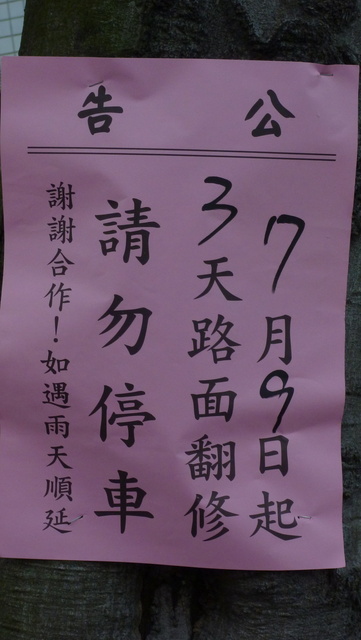 公告
7月9日起
3天路面翻修
請勿停車
謝謝合作!如遇雨天順延